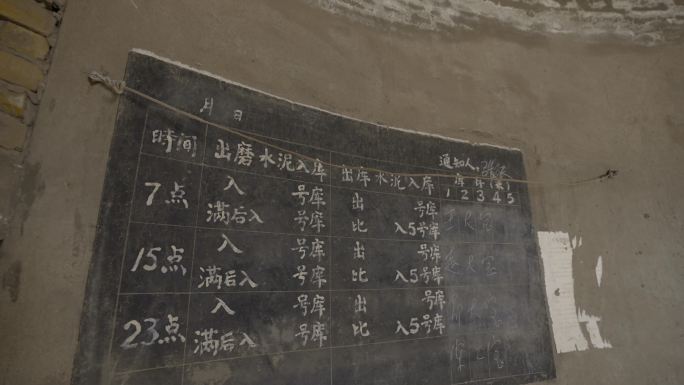 月 日
時间 出磨水泥入库 出库水泥入库 通知人
库 库 (来)
1 2 3 4 5
7点 入 号库 出 号库
满后入 号库 比 入5号库
15点 入 号库 出 号库
满后入 号库 比 入5号库
23点 入 号库 出 号库
满后入 号库 比 入5号库